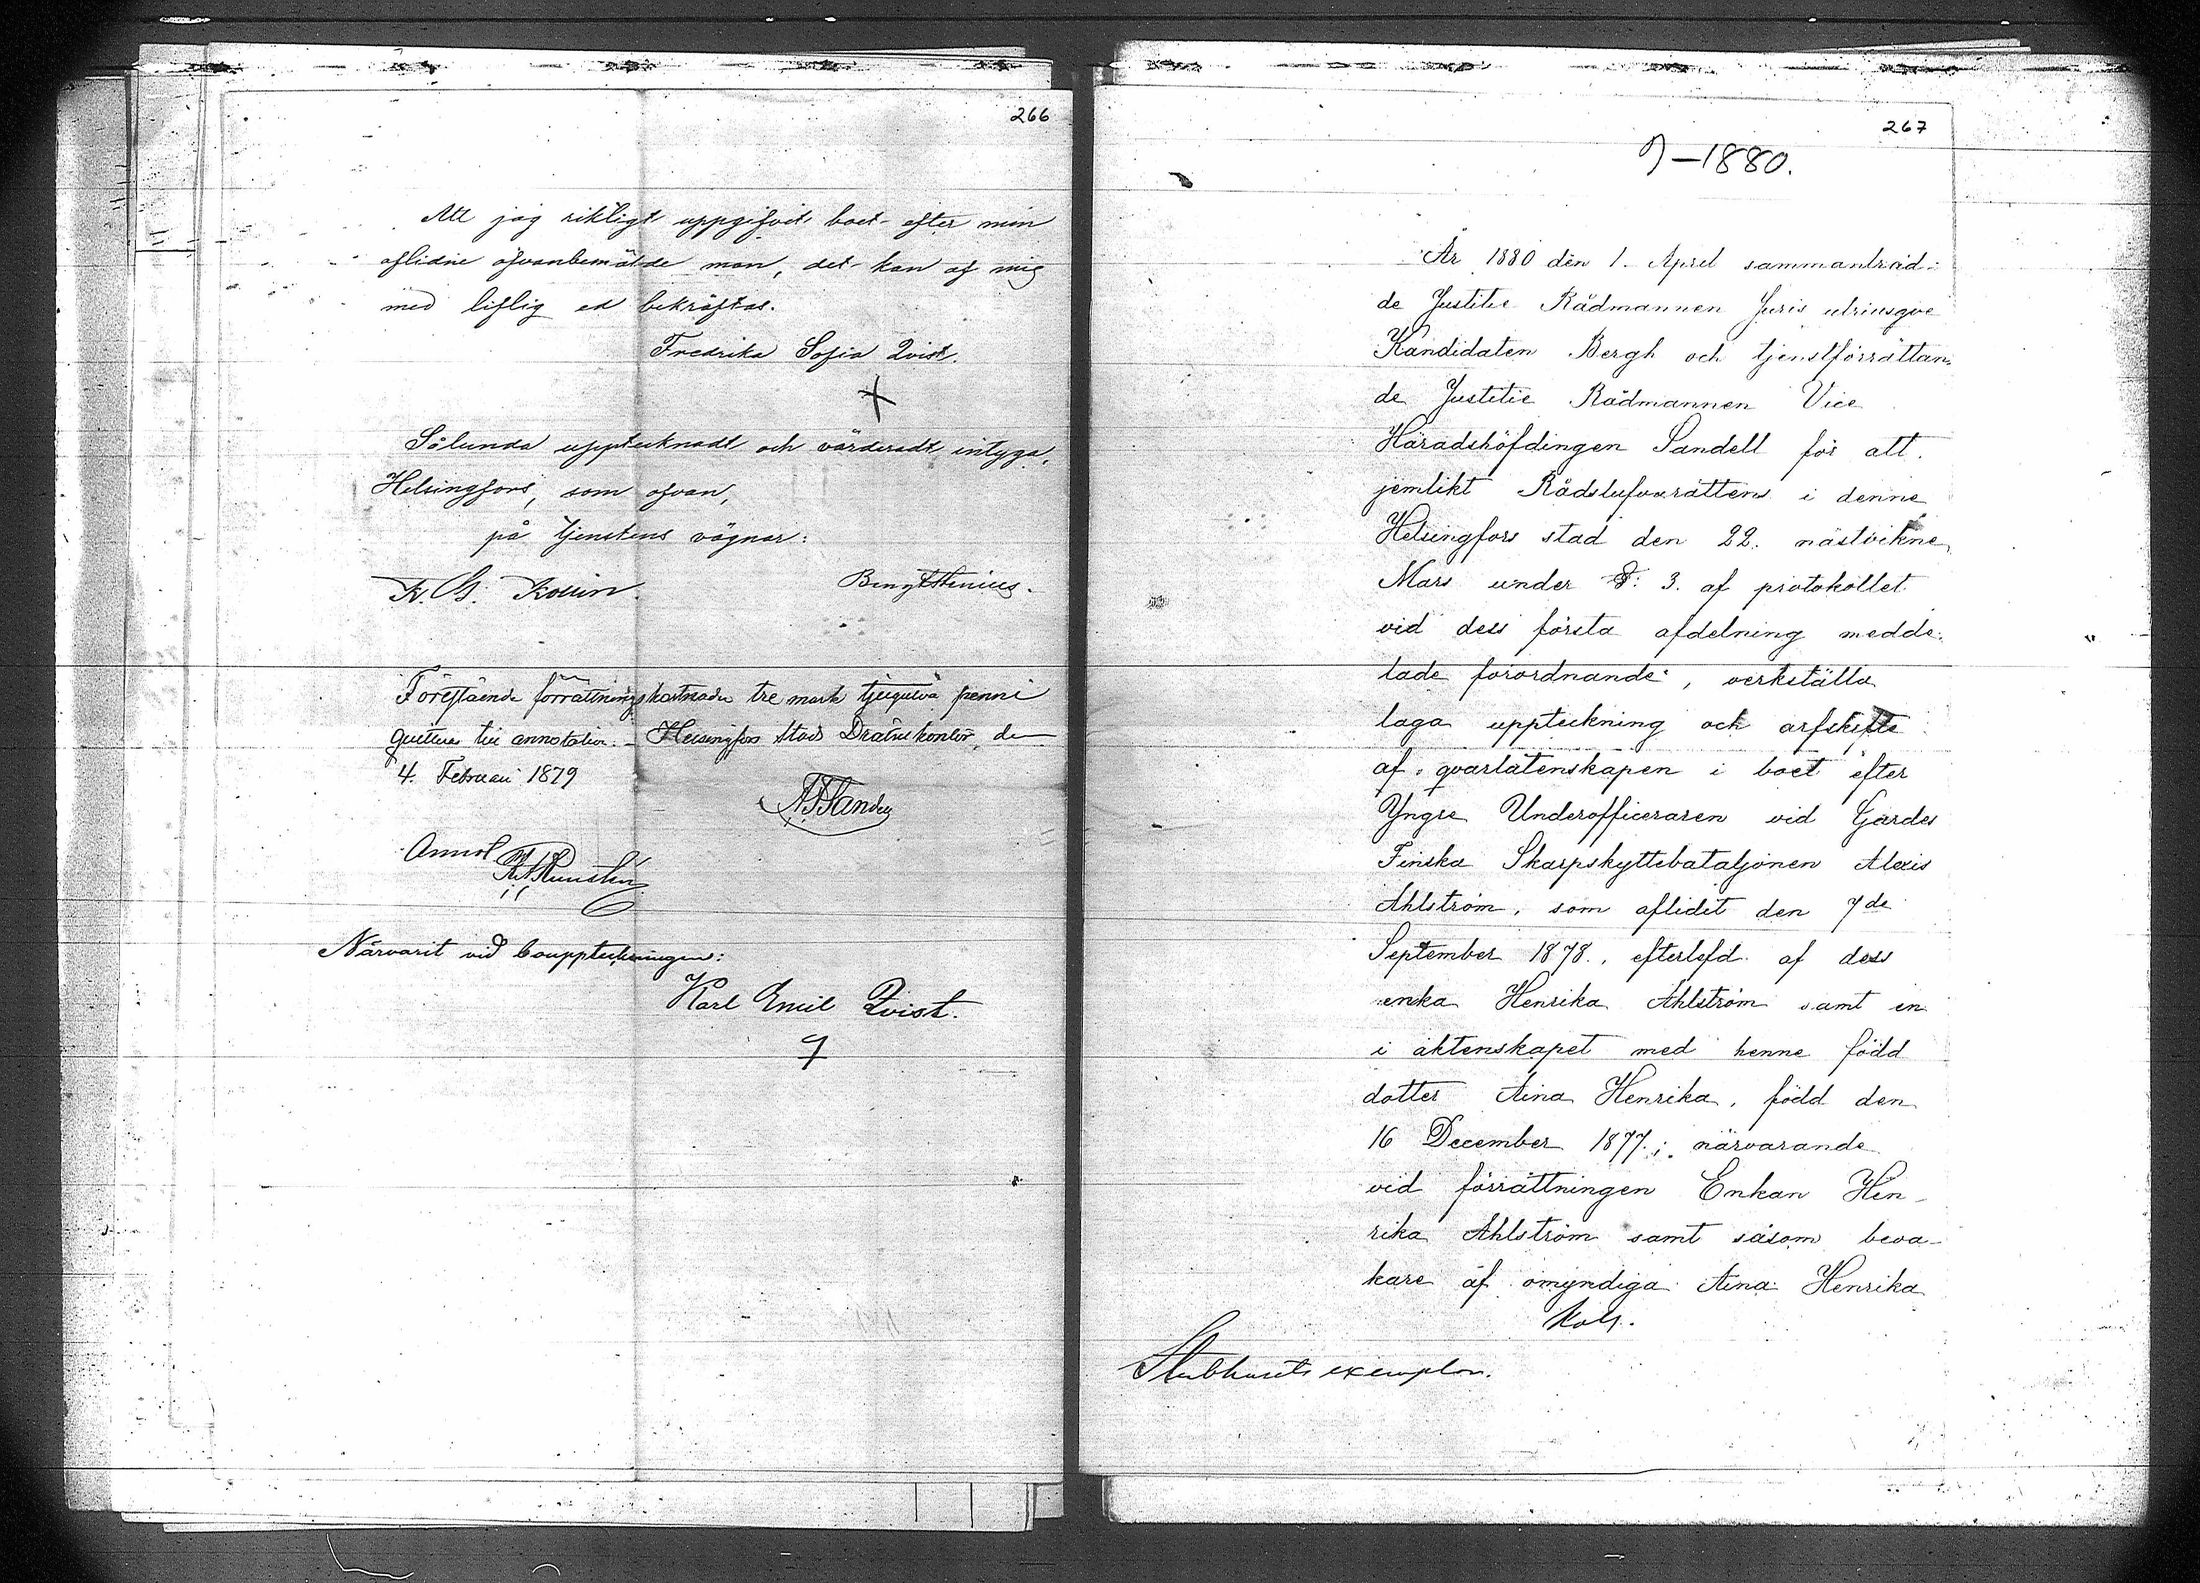 266
Att jag riktigt uppgifvit boet efter min
aflidne ofvanbemälde man, det kan af mig
med liflig ed bekräftas.
Fredrika Sofia Qvist.
Sålunda upptecknadt och värderadt, intyga,
Helsingfors, som ofvan,
på tjenstens vägnar:
K. G. Bengt Stenius.
Förestående förrättningskostnader tre mark tjugutvå penni
quitteras till annotation. Helsingfors Stads Drätselkontor, den
4. Februari 1879
Annot
Närvarit vid bouppteckningen:
Karl Emil Qvist.
267
9-1880.
År 1880 den 1. April sammanträd-
de Justitie Rådmannen Juris utriusque
Kandidaten Bergh och tjenstförrättan-
de Justitie Rådmannen Vice
Häradshöfdingen Sandell för att
jemlikt Rådstufvurättens i denne
Helsingfors stad den 22. nästvikne
Mars under §: 3. af protokollet
vid dess första afdelning medde-
lade förordnande, verkställa
laga uppteckning och arfskifte
af qvarlåtenskapen i boet efter
Yngre Underofficeraren vid Gardes
Finska Skarpskyttebataljonen Alexis
Ahlström, som aflidit den 7de
September 1878., efterlefd af dess
enka Henrika Ahlström samt en
i äktenskapet med henne född
dotter Aina Henrika, född den
16 December 1877.; närvarande
vid förrättningen Enkan Hen-
rika Ahlström samt såsom beva-
kare af omyndiga Aina Henrika
Sterbhusets exemplar.